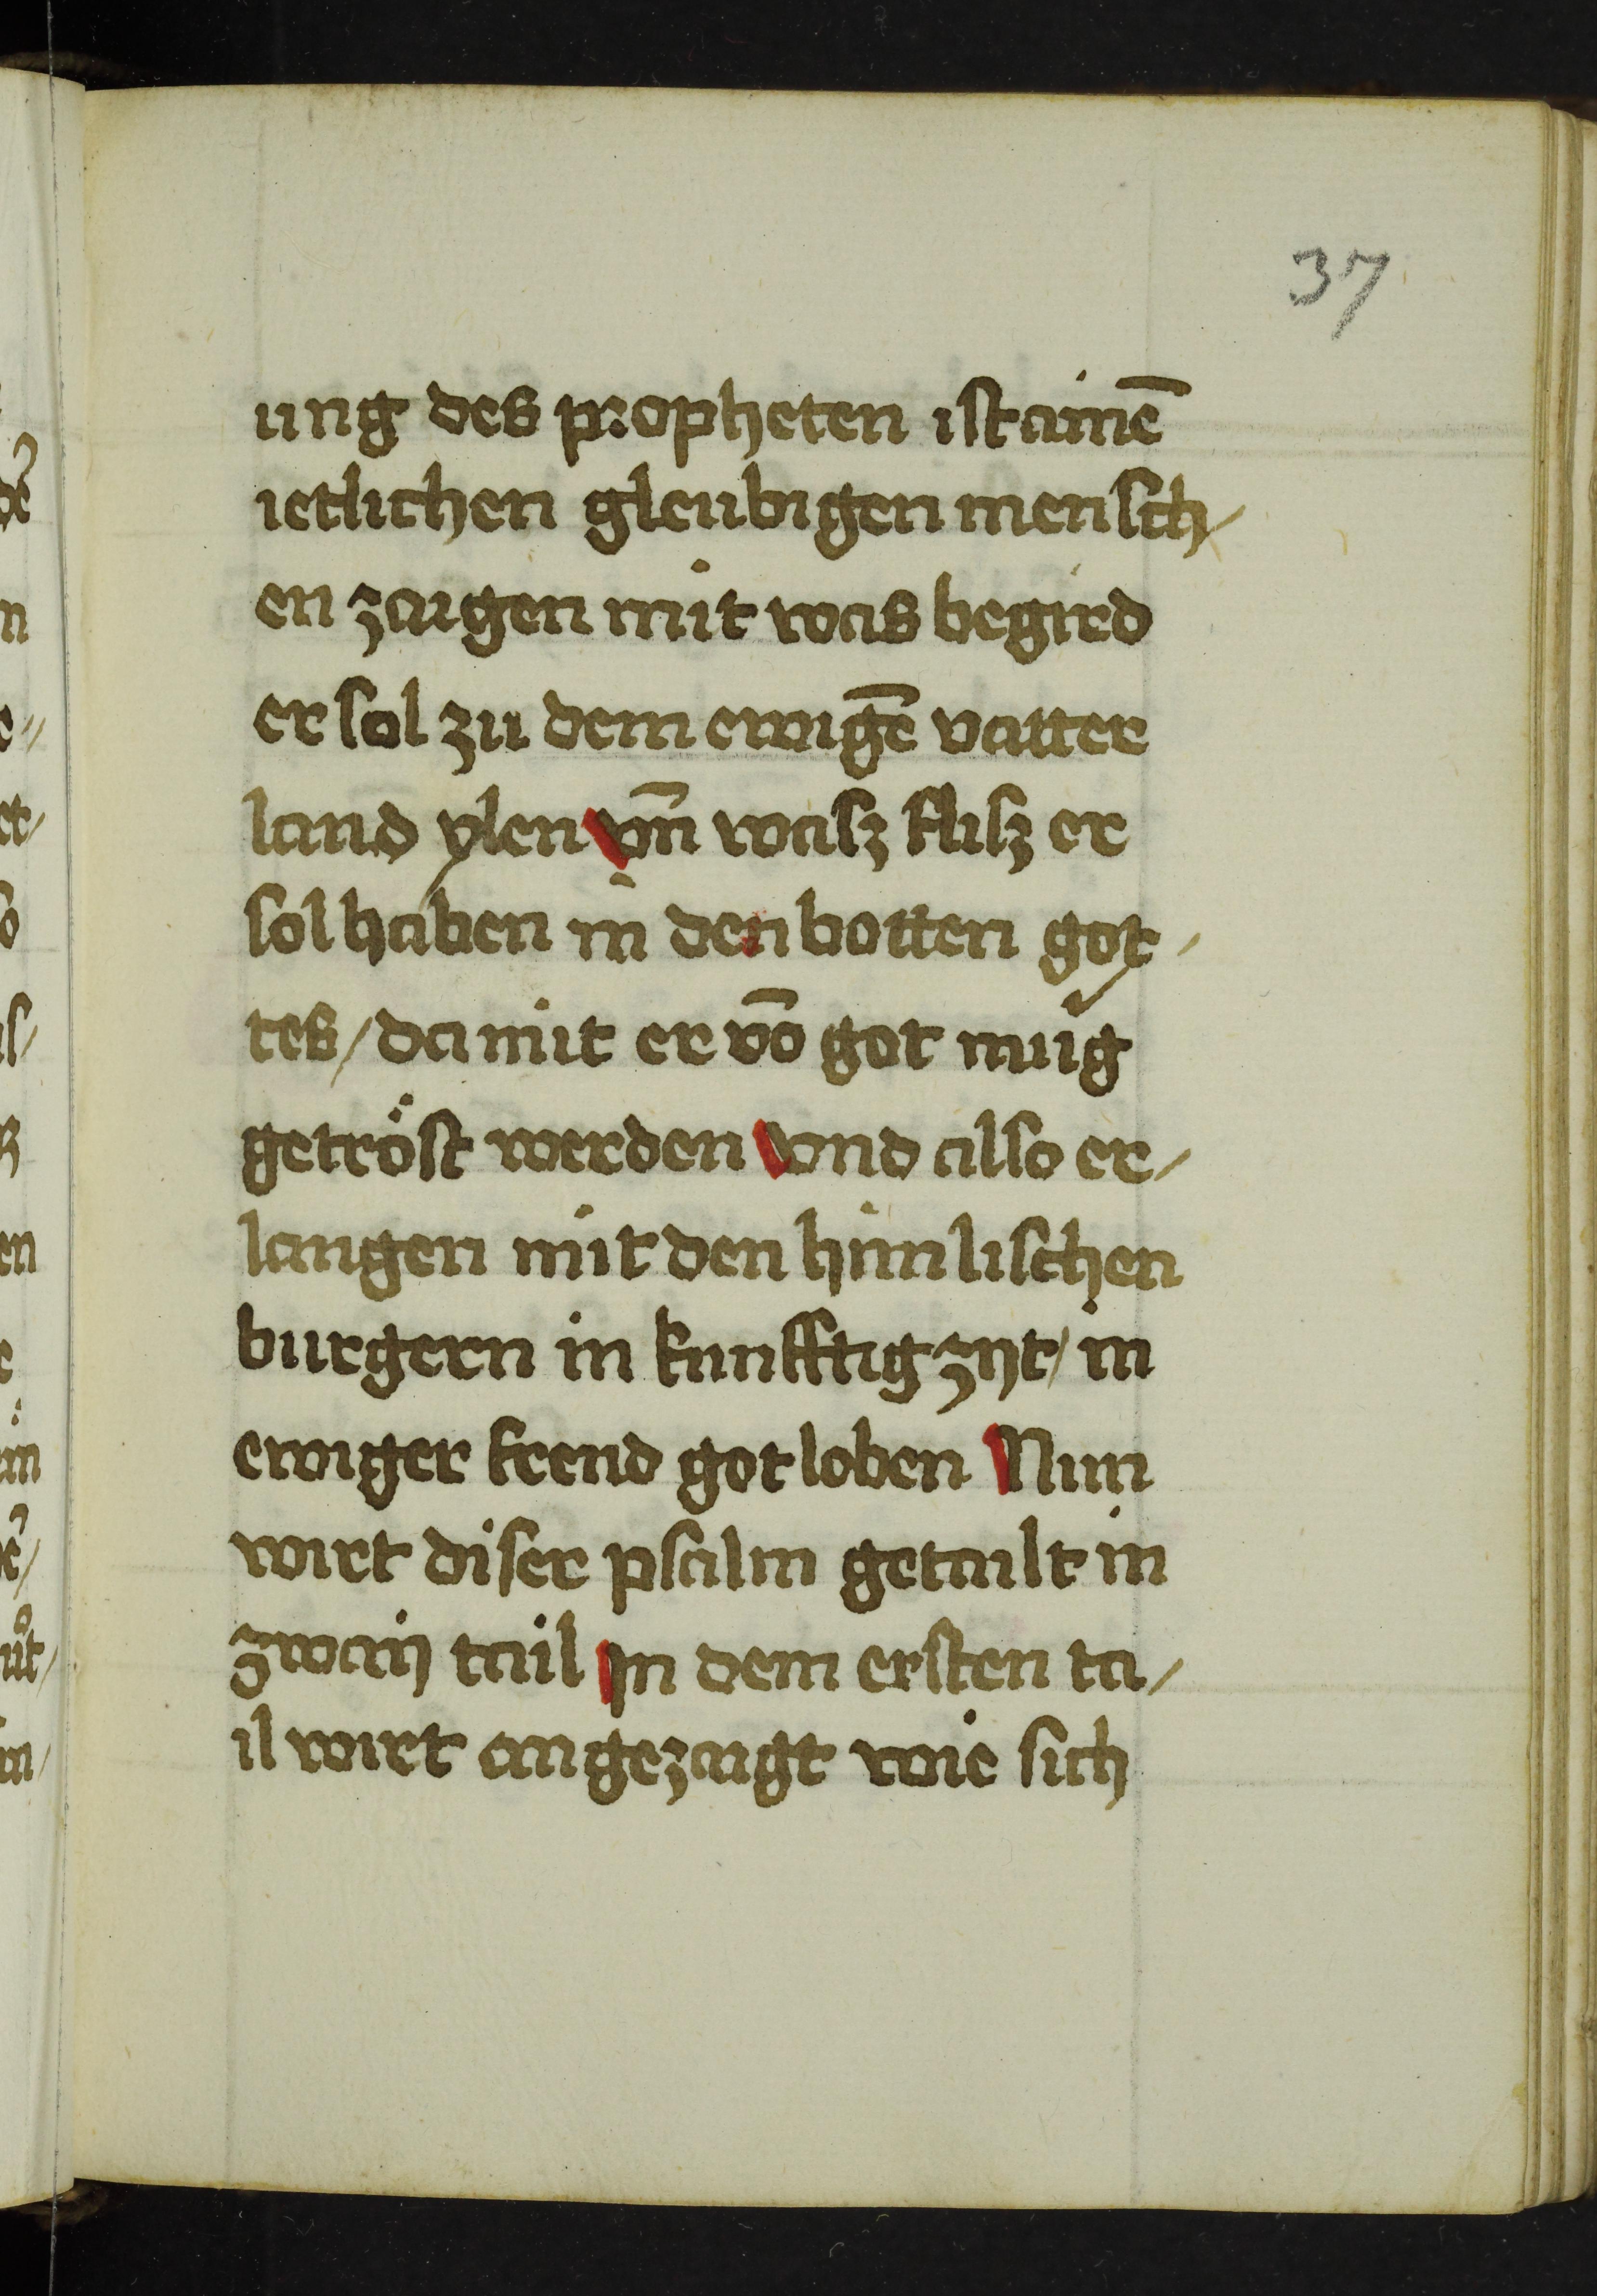 37
ung des propheten ist ainē
ietlichen gleubigen mensch/
en zaigen mit was begird
er sol zu dem ewigē vatter
land ylen vn̄ wasz flisz er
sol haben in den botten got/
tes/ da mit er vō got mug
getröst werden vnd also er/
langen mit den himlischen
burgern in kunfftig zyt/ in
ewiger freud got loben Nun
wirt diser psalm getailt in
zwaij tail In dem ersten ta/
il wirt angezaigt wie sich